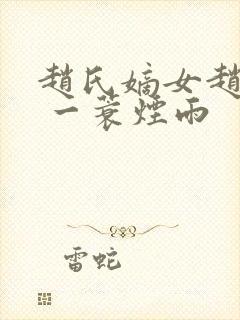 趙氏嫡女趙
一蓑煙雨
雷蛇